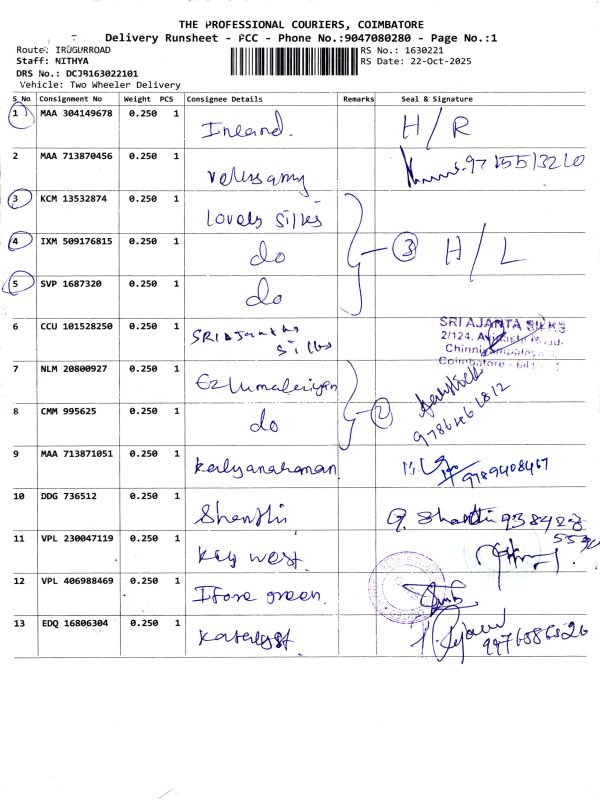 THE PROFESSIONAL COURIERS, COIMBATORE
Delivery Runsheet - PCC - Phone No.:9047080280 - Page No.:1
Route: IRUGURROAD RS No.: 1630221
Staff: NITHYA RS Date: 22-Oct-2025
DRS No.: DCJB163022101
Vehicle: Two Wheeler Delivery
S_No Consignment No Weight PCS Consignee Details Remarks Seal & Signature
1 MAA 304149678 0.250 1 Inland. H/R
2 MAA 713870456 0.250 1 velusamy
3 KCM 13532874 0.250 1 Lovely Silks
4 IXM 509176815 0.250 1 do 3 H/L
5 SVP 1687320 0.250 1 do
6 CCU 101528250 0.250 1 SRI Ajantha Silks SRI AJANTA SILKS
2/124,
Coimbatore
7 NLM 20800927 0.250 1 Ezhumalaiyan
8 CMM 995625 0.250 1 do 2 9786461812
9 MAA 713871051 0.250 1 kalyanaraman 9789408467
10 DDG 736512 0.250 1 Shanthi G. Shanthi 938428
11 VPL 230047119 0.250 1 Key west.
12 VPL 406988469 0.250 1 green.
13 EDQ 16806304 0.250 1 Katalyst. 9976586526